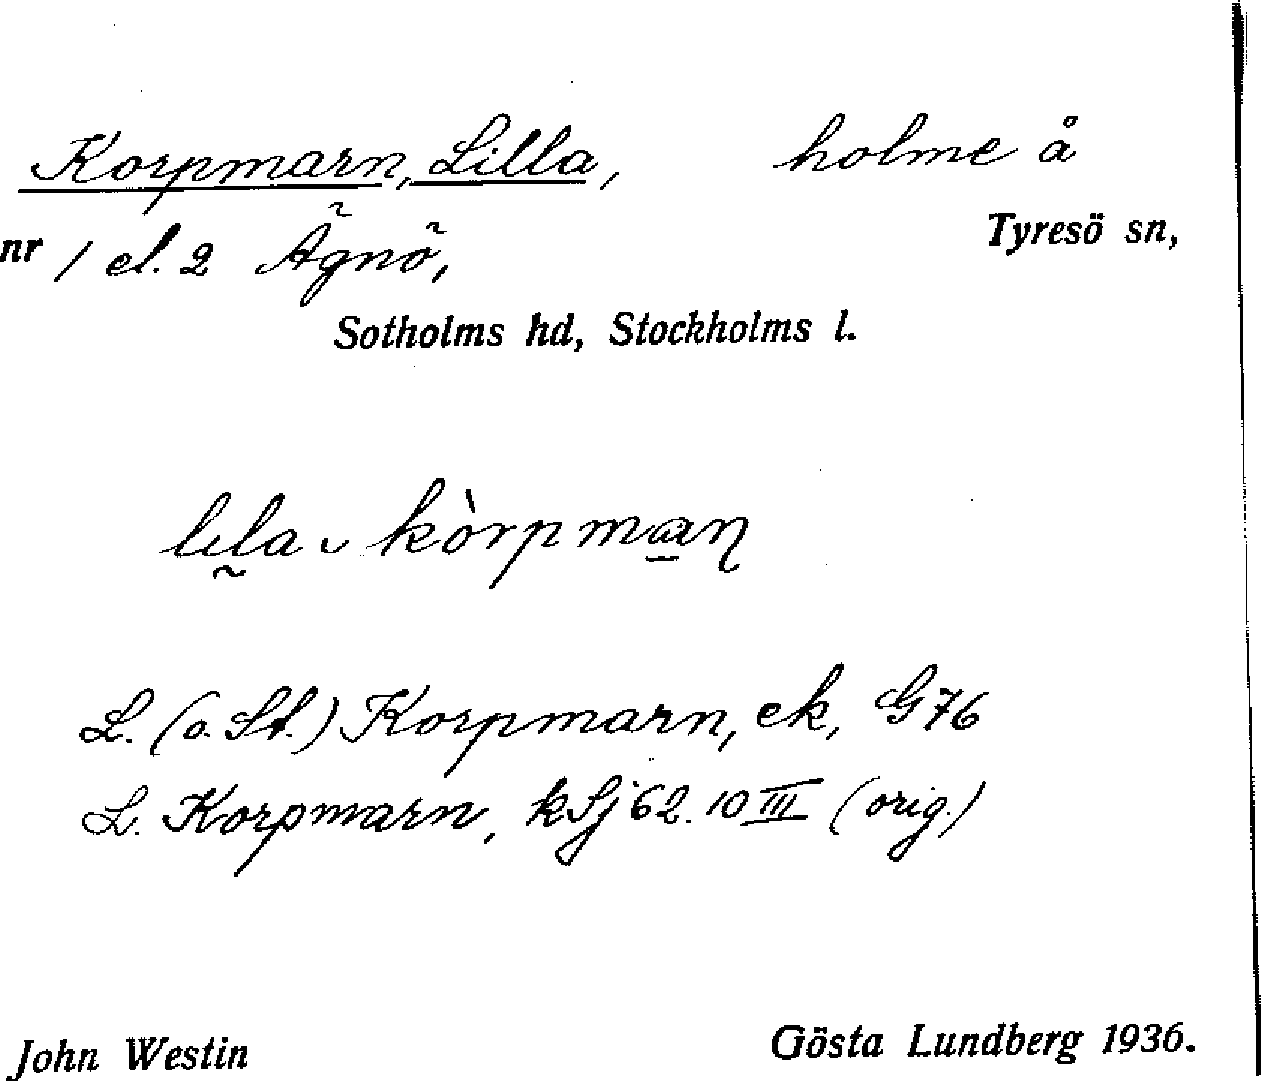 Korpmarn, Lilla, holme å
nr 1 el. 2 Ägnö, Tyresö sn,
Sotholms hd, Stockholms l.
lɩla ᴗ kòrpmaṇ
L. (o. St.) Korpmarn, ek, G76
L. Korpmarn, kSj 62.10 III (orig.)
John Westin Gösta Lundberg 1936.